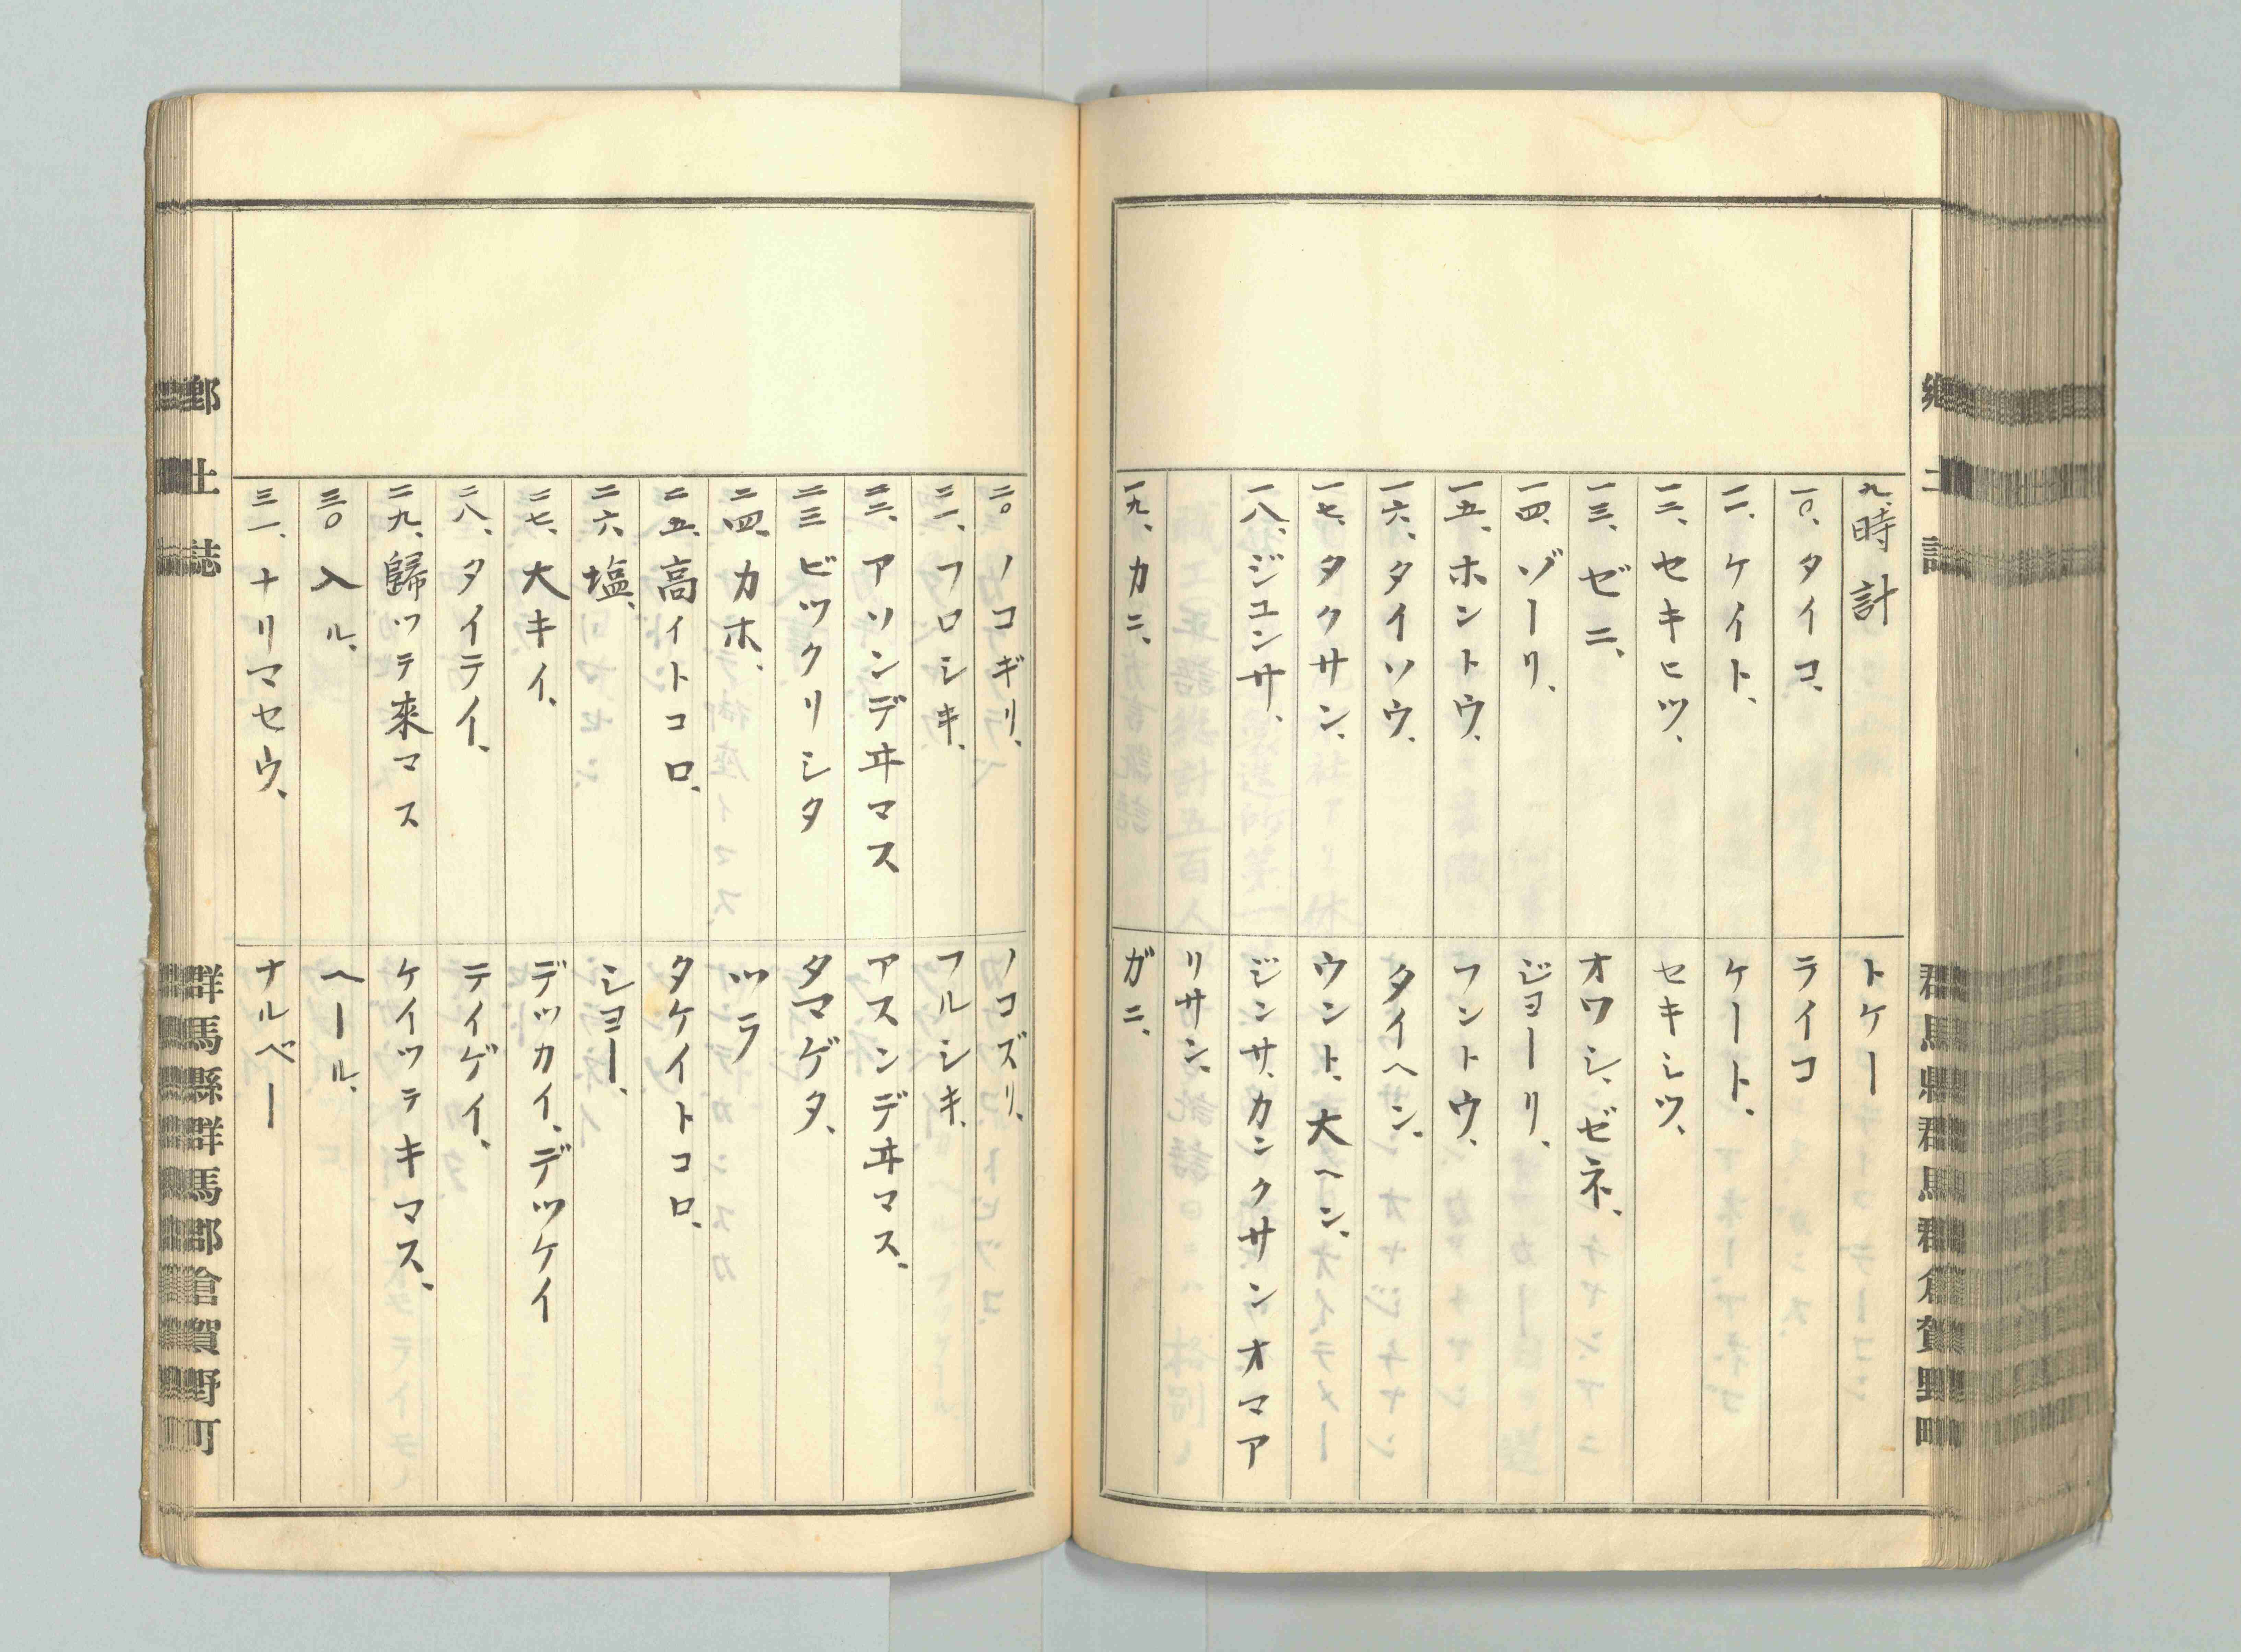 郷土誌
群馬縣群馬郡倉賀野町
九、時計 トケー
一〇、タイコ、 ライコ
一一、ケイト、 ケート、
一二、セキヒツ、 セキシツ、
一三、ゼニ、 オワシ、ゼネ、
一四、ゾーリ、 ジョーリ、
一五、ホントウ、 フントウ、
一六、タイソウ、 タイヘン、
一七、タクサン、 ウント、大ヘン、
一八、ジユンサ、 ジンサ、カンクサンオマア
リサン、
一九、カニ、 ガニ、
二〇 ノコギリ、 ノコズリ、
二一、フロシキ、 フルシキ、
二二、アソンデヰマス アスンデヰマス、
二三 ビックリシタ タマゲタ、
二四、カホ、 ツラ
二五、高イトコロ、 タケイトコロ、
二六、塩、 シヨー、
二七、大キイ、 デッカイ、デツケイ
二八、タイテイ、 テイゲイ、
二九、歸ッテ來マス ケイッテキマス、
三〇 入ル、 ヘール、
三一、ナリマセウ、 ナルベー
郷土誌
群馬縣群馬郡倉賀野町